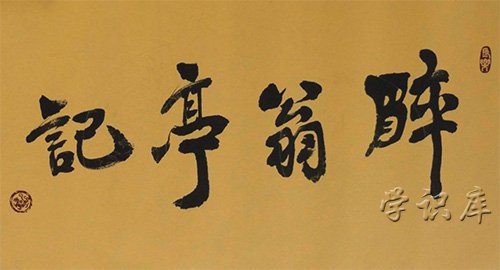 醉翁亭記
学识库